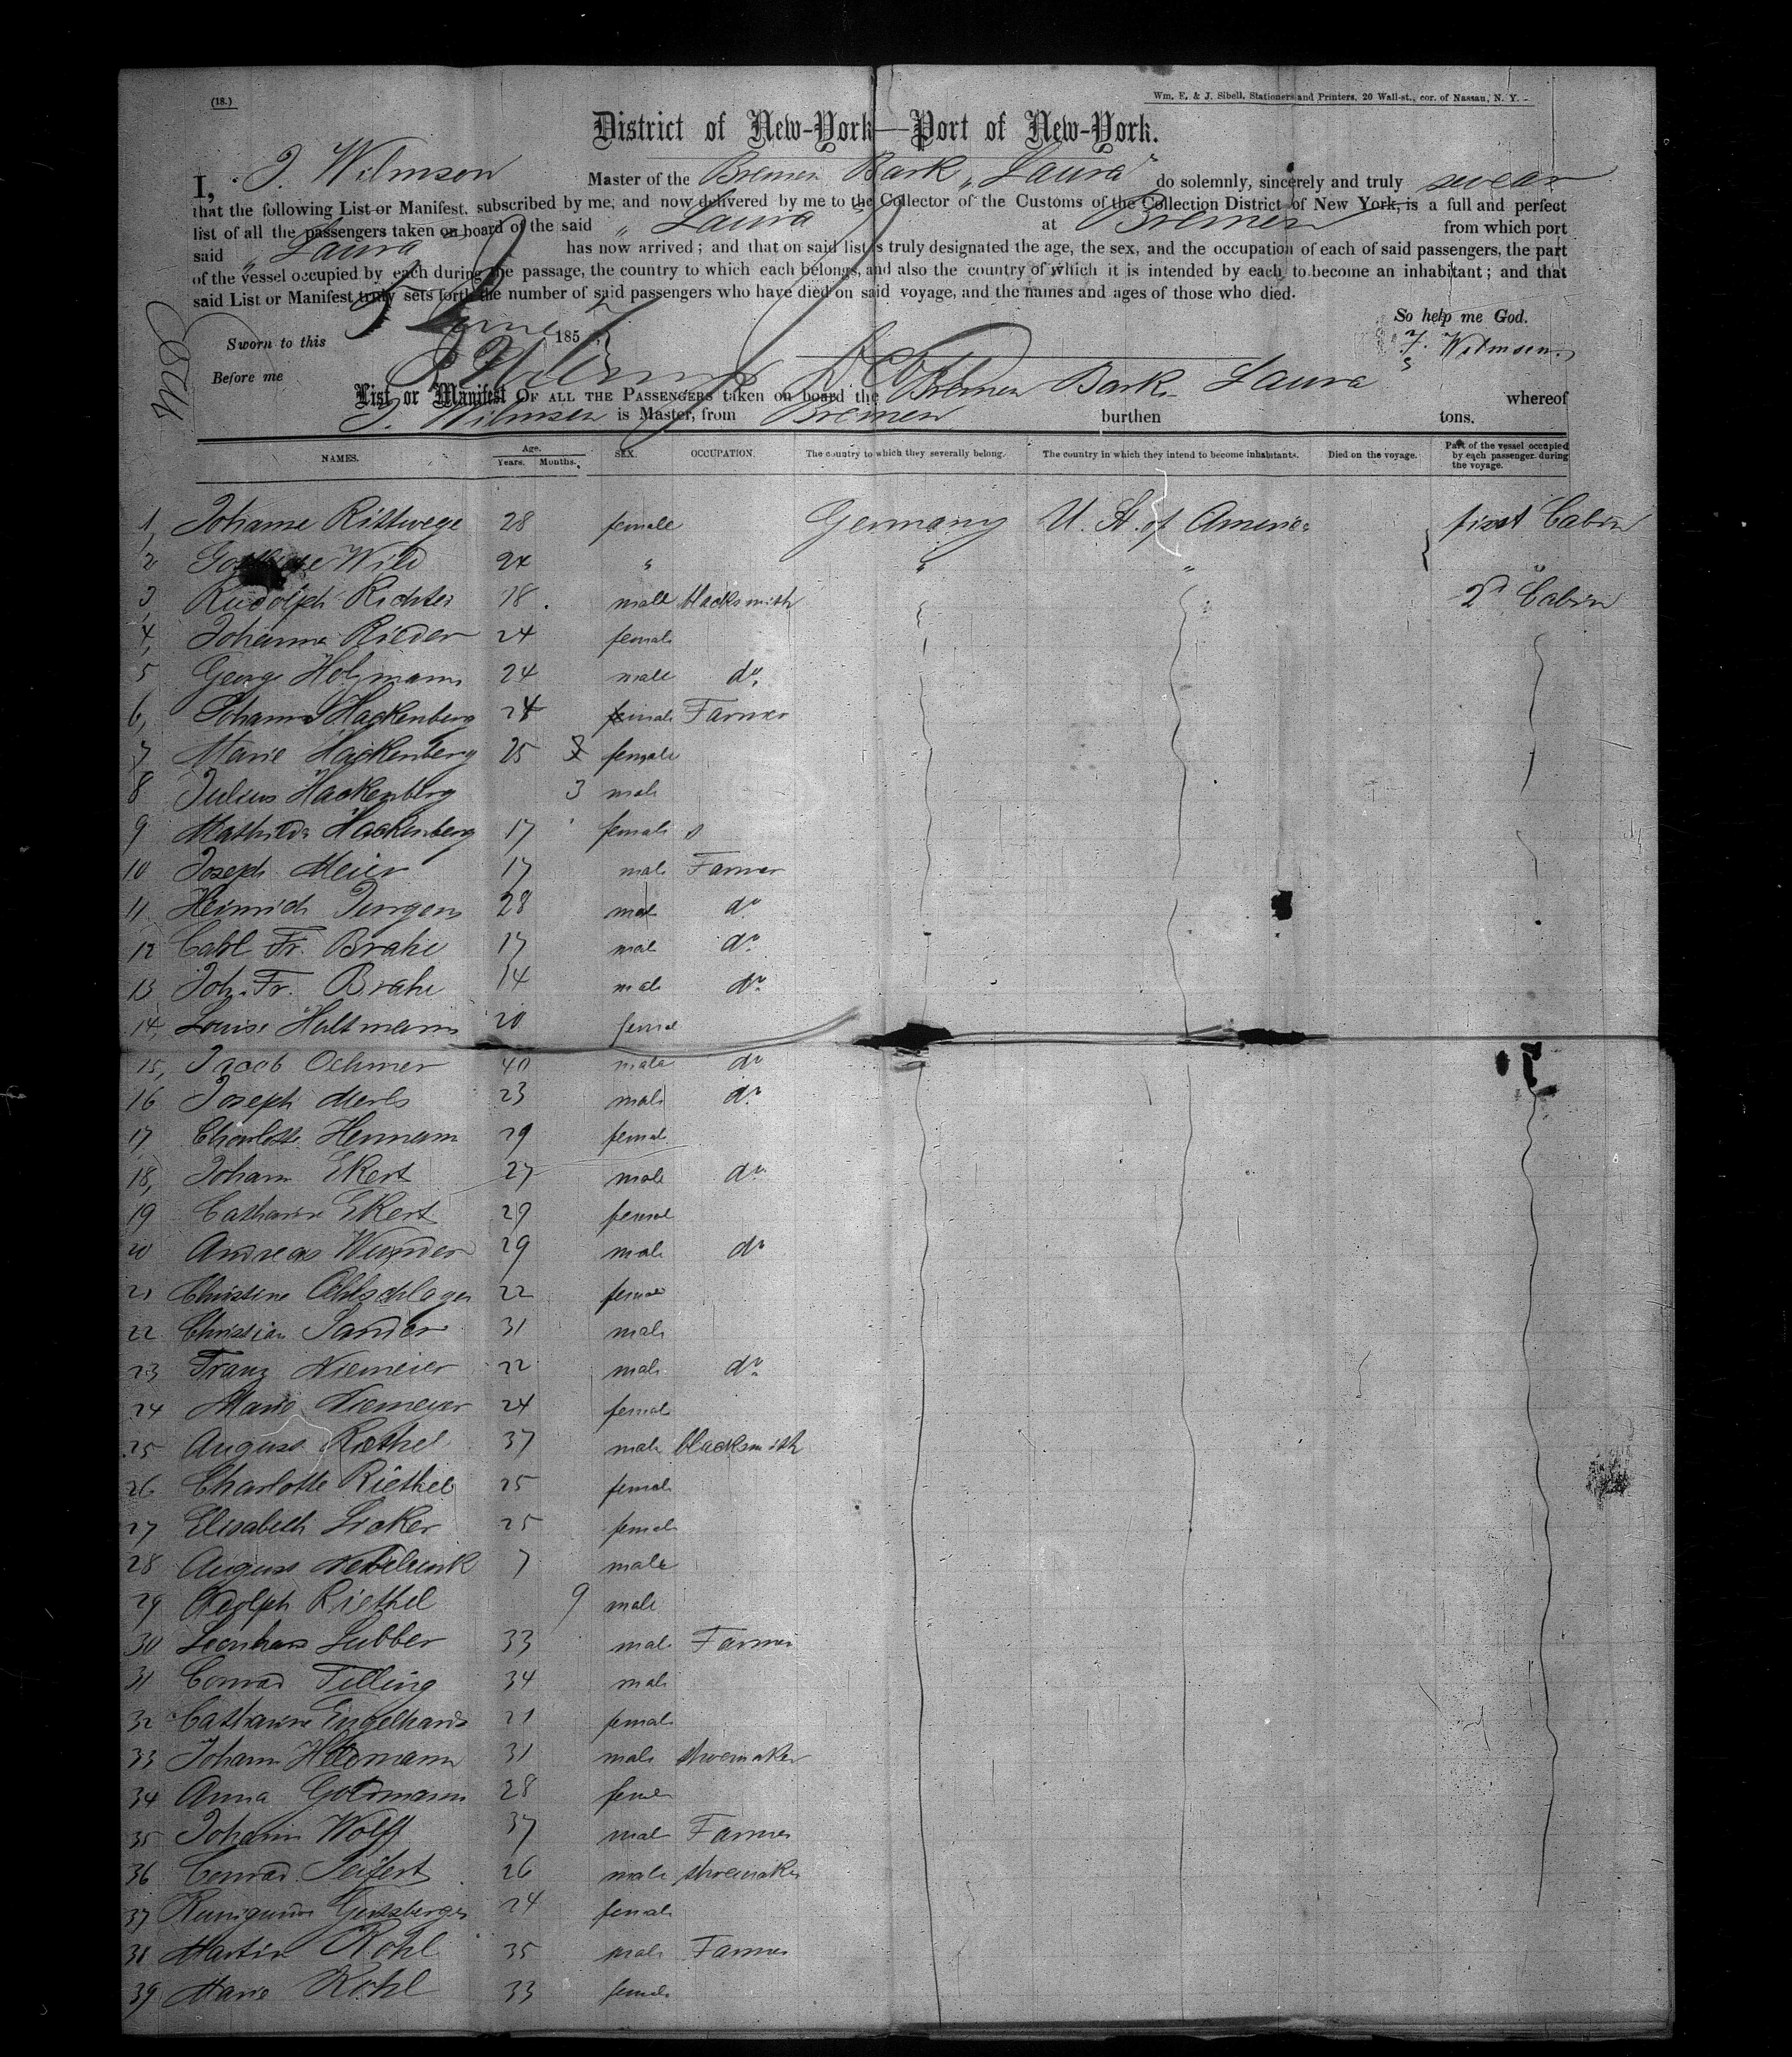 (18.)
Wm. E. & J. Sibell, Stationers and Printers, 20 Wall-st., cor. of Nassau, N. Y.
District of New-York—Port of New-York.
I, J. Wilmson Master of the Bremen Bark „Laura" do solemnly, sincerely and truly swear
that the following List or Manifest, subscribed by me, and now delivered by me to the Collector of the Customs of the Collection District of New York, is a full and perfect
list of all the passengers taken on board of the said „Laura" at Bremen from which port
said „Laura" has now arrived; and that on said list is truly designated the age, the sex, and the occupation of each of said passengers, the part
of the vessel occupied by each during the passage, the country to which each belongs, and also the country of which it is intended by each to become an inhabitant; and that
said List or Manifest truly sets forth the number of said passengers who have died on said voyage, and the names and ages of those who died.
So help me God.
Sworn to this 5 June 185
J. Wilmsen
Before me
List or Manifest OF ALL THE PASSENGERS taken on board the Bremen Bark Laura whereof
J. Wilmsen is Master, from Bremen burthen tons.
NAMES. Age. Years. Months. SEX. OCCUPATION. The country to which they severally belong. The country in which they intend to become inhabitants. Died on the voyage. Part of the vessel occupied by each passenger during the voyage.
1, Johanne Rittwege 28 female Germany U. St. of America first Cabin
2 Wild 24 " " " "
3, Rudolph Richter 18 male blacksmith 2d Cabin
4, Johanna Rieder 24 female
5 George Holzmann 24 male do.
6, Johann Hackenberg 28 male Farmer
7 Marie Hackenberg 25 female
8 Julius Hackenberg 3 male
9 Mathilde Hackenberg 17 female
10 Joseph Meier 17 male Farmer
11 Heinrich Jurgens 28 male do.
12 Carl Fr. Brake 17 male do.
13 Joh. Fr. Brake 14 male do.
14, Louise Hultmann 20 female
15, Jacob Oehmer 40 male do
16 Joseph Merls 23 male do.
17 Charlotte Hermann 29 female
18, Johann Ekert 27 male do.
19 Catharine Ekert 29 female
20 Andreas Wunder 29 male do
21 Christine Ohlschlager 22 female
22 Christian Sander 31 male
23 Franz Niemeier 22 male do.
24 Marie Niemeyer 24 female
25 August Riethel 37 male blacksmith
26 Charlotte Riethel 25 female
27 Elisabeth Licker 25 female
28 August 7 male
29 Adolph Riethel 9 male
30 Leonhard Lubber 33 male Farmer
31 Conrad Tilling 34 male
32 Catharine Engelhard 21 female
33 Johann Heldmann 31 male shoemaker
34 Anna Goldmann 28 female
35 Johann Wolff 37 male Farmer
36 Conrad Seifert 26 male shoemaker
37 Kunigunde 24 female
38 Martin Kohl 35 male Farmer
39 Marie Kohl 33 female